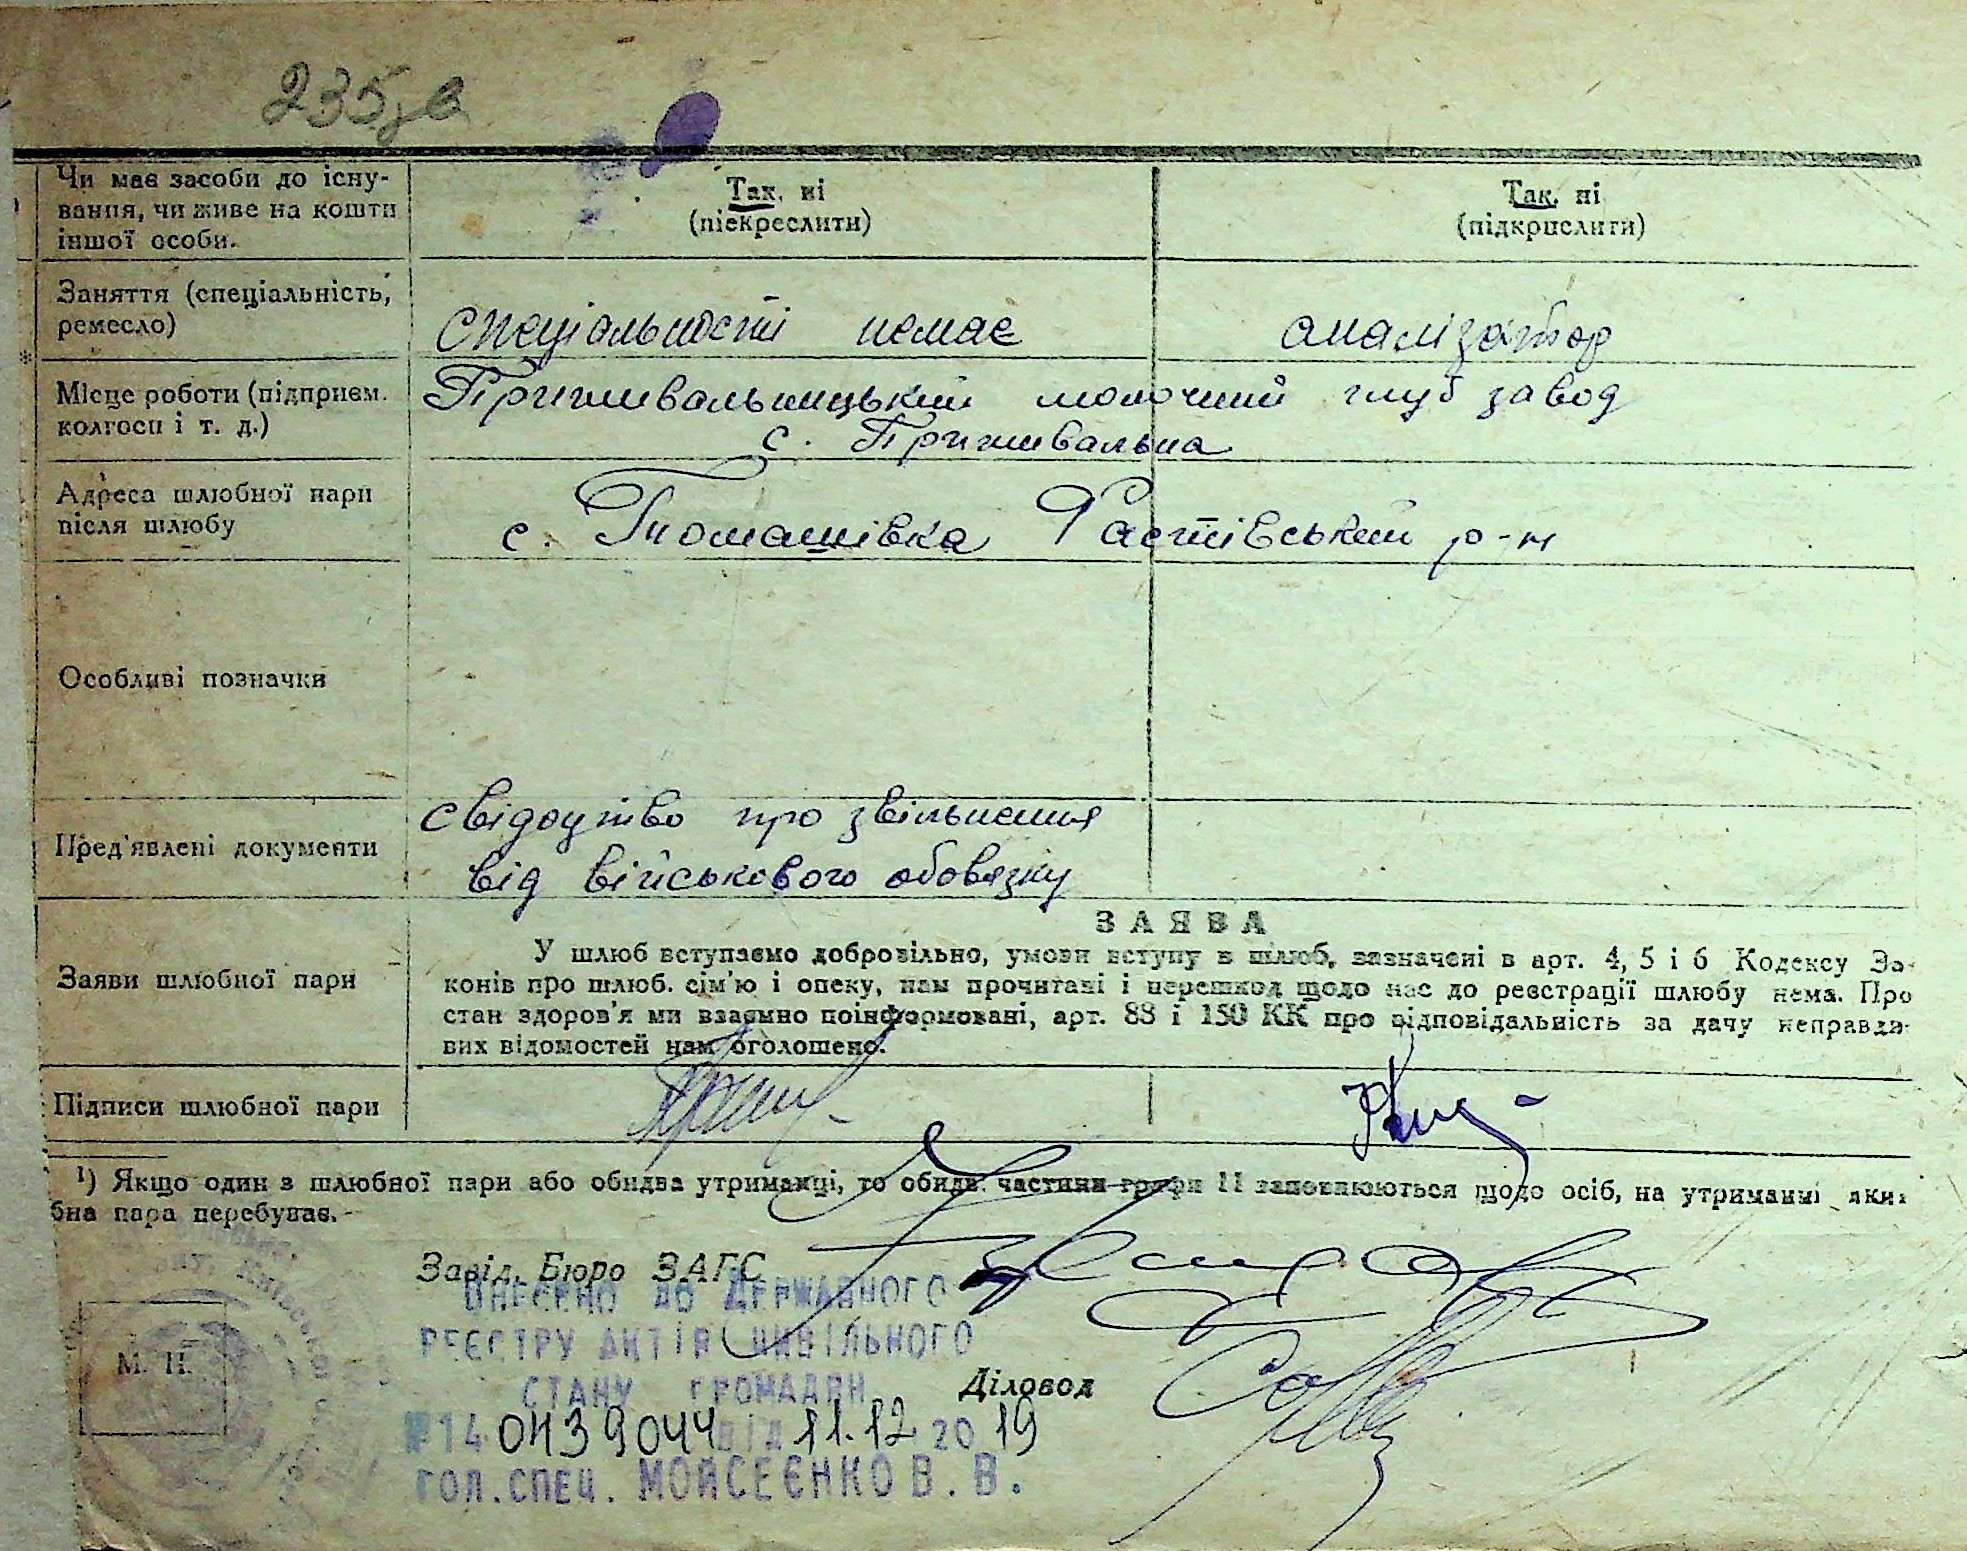 235зв
Чи має засоби до існу-
вання, чи живе на кошти
іншої особи.
Так, ні
(підкреслити)
Так, ні
(підкрислити)
Заняття (спеціальність,
ремесло)
спеціальності немає
аналізатор
Місце роботи (підприєм.
колгосп і т. д.)
молочний глуб завод
с.
Адреса шлюбної пари
після шлюбу
с. Томашівка Фастівський р-н
Особливі позначки
Пред'явлені документи
свідоцтво про звільнення
від військового обовязку
Заяви шлюбної пари
ЗАЯВА
У шлюб вступаємо добровільно, умови вступу в шлюб, зазначені в арт. 4, 5 і 6 Кодексу За-
конів про шлюб. сім'ю і опеку, нам прочитані і перешкод щодо нас до реєстрації шлюбу нема. Про
стан здоров'я ми взаємно поінформовані, арт. 88 і 150 КК про відповідальність за дачу неправди-
вих відомостей нам оголошено.
Підписи шлюбної пари
¹) Якщо один з шлюбної пари або обидва утриманці, то обидв. частини графи 11 заповнюються щодо осіб, на утриманні яких
бна пара перебуває.
Завід. Бюро ЗАГС
М. П.
Діловод
ВНЕСЕНО ДО ДЕРЖАВНОГО
РЕЄСТРУ АКТІВ ЦИВІЛЬНОГО
СТАНУ ГРОМАДЯН
№14 0439044 ВІД 11.12 2019
ГОЛ.СПЕЦ. МОЙСЕЄНКО В.В.